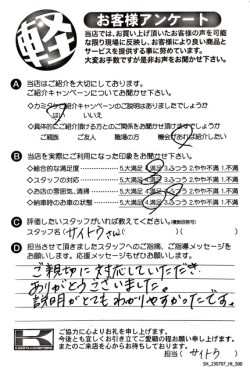 軽
お客様アンケート
当店では、お買い上げ頂いたお客様の声を可能
な限り現場に反映し、お客様により良い商品と
サービスを提供する事に努めています。
大変お手数ですが是非お声をお聞かせ下さい。
A 当店はご紹介を大切にしております。
ご紹介キャンペーンについてお聞かせ下さい。
◇カミタケご紹介キャンペーンのご説明はありましたでしょうか
はい いいえ
◇具体的にご紹介頂ける方とのご関係をお聞かせ頂けますでしょうか
ご親族 ご友人 職場の方 機会があれば紹介したい
B 当店を実際にご利用になった印象をお聞かせ下さい。
◇総合的な満足度 5.大満足 4.満足 3.ふつう 2.やや不満 1.不満
◇スタッフの対応 5.大満足 4.満足 3.ふつう 2.やや不満 1.不満
◇お店の雰囲気、清掃 5.大満足 4.満足 3.ふつう 2.やや不満 1.不満
◇納車時のお車の状態 5.大満足 4.満足 3.ふつう 2.やや不満 1.不満
C 評価したいスタッフがいれば教えてください。(複数回答可)
スタッフ名(サイトウさん)( )
D 担当させて頂きましたスタッフへのご指摘、ご指導メッセージを
お願いします。応援メッセージもぜひお願いします。
ご親切に対応していただき
ありがとうございました。
説明がとてもわかりやすかったです。
K
ご協力に心よりお礼を申し上げます。
今後とも宜しくお引き立てご愛顧の程お願い申し上げます。
またのご来店を心からお待ちしております。
担当(サイトウ)
SH_230707_HI_500